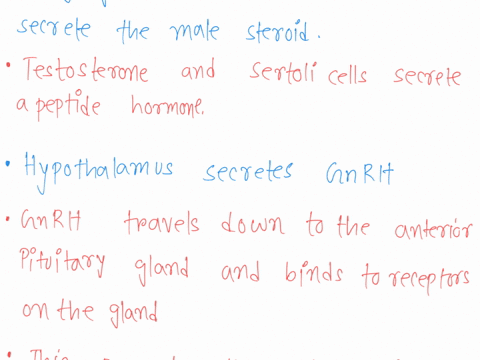 secrete the male steroid.
• Testosterone and Sertoli cells secrete
a peptide hormone.
• Hypothalamus secretes GnRH
• GnRH travels down to the anterior
Pituitary gland and binds to receptors
on the gland
• This